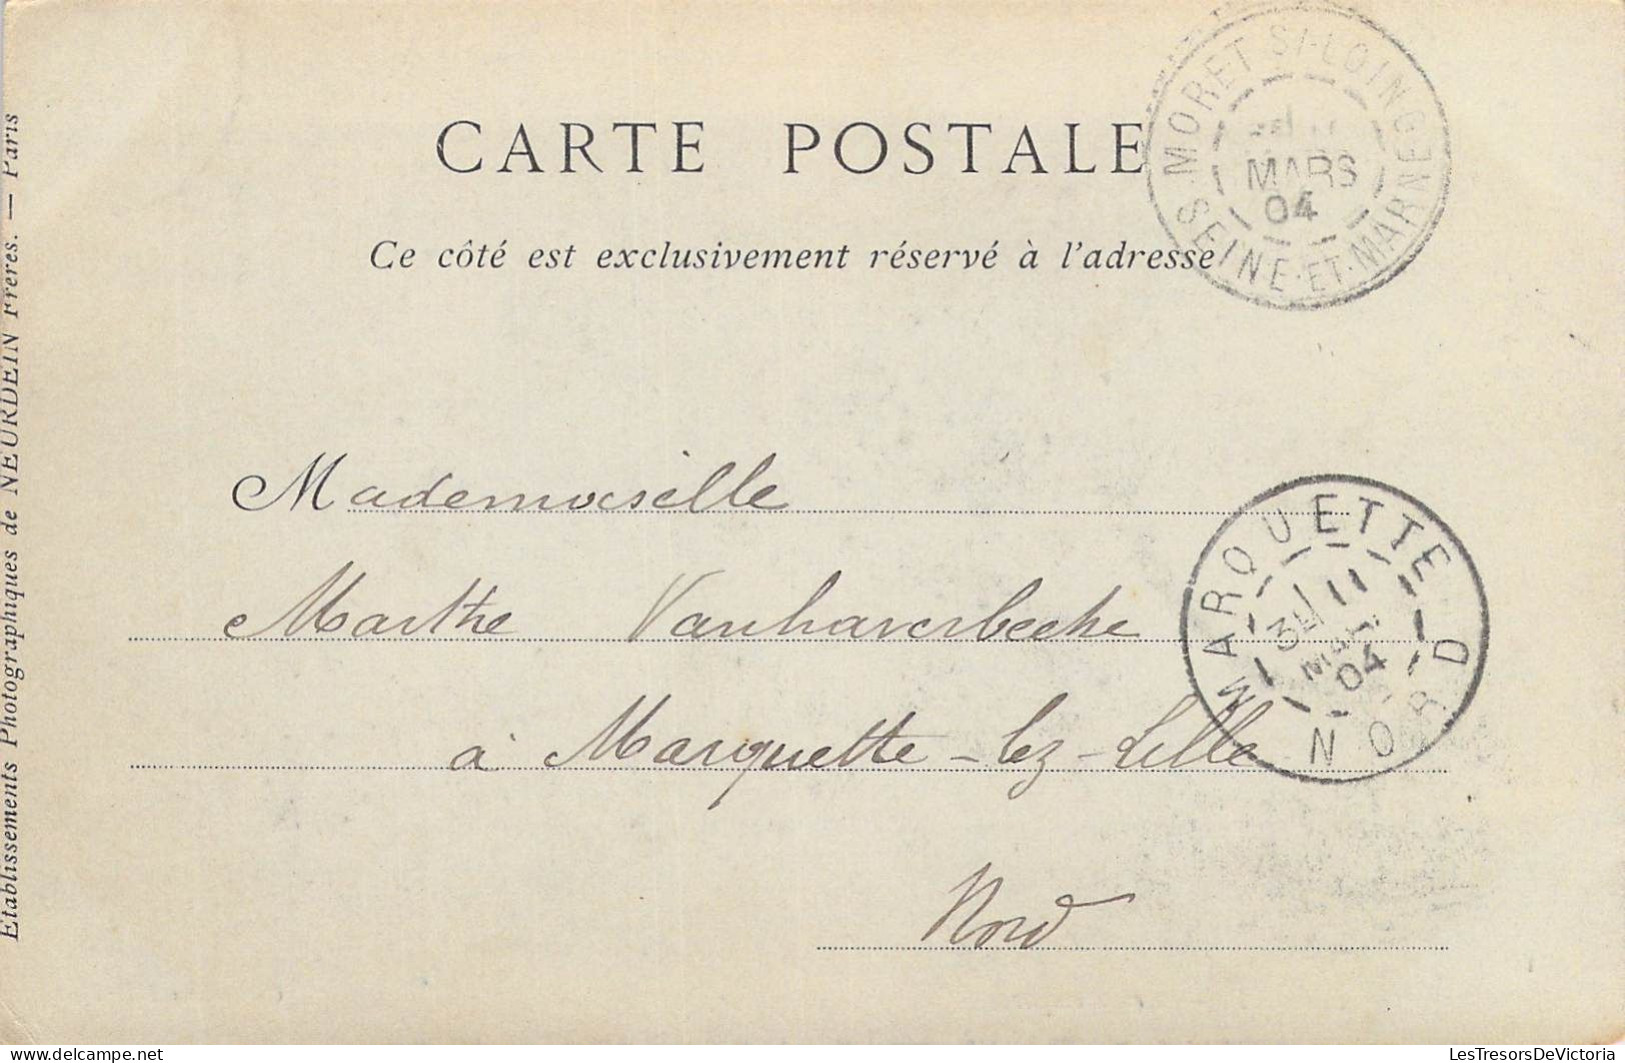 CARTE POSTALE
Ce côté est exclusivement réservé à l'adresse
MORET-S/-LOING
MARS
04
SEINE-ET-MARNE
Etablissements Photographiques de NEURDEIN Frères. — Paris
Mademoiselle
Marthe Vanhaverbeeke
à Marquette-lez-Lille
Nord
MARQUETTE
3E/ 11
MARS
04
NORD
delcampe.net
LesTresorsDeVictoria